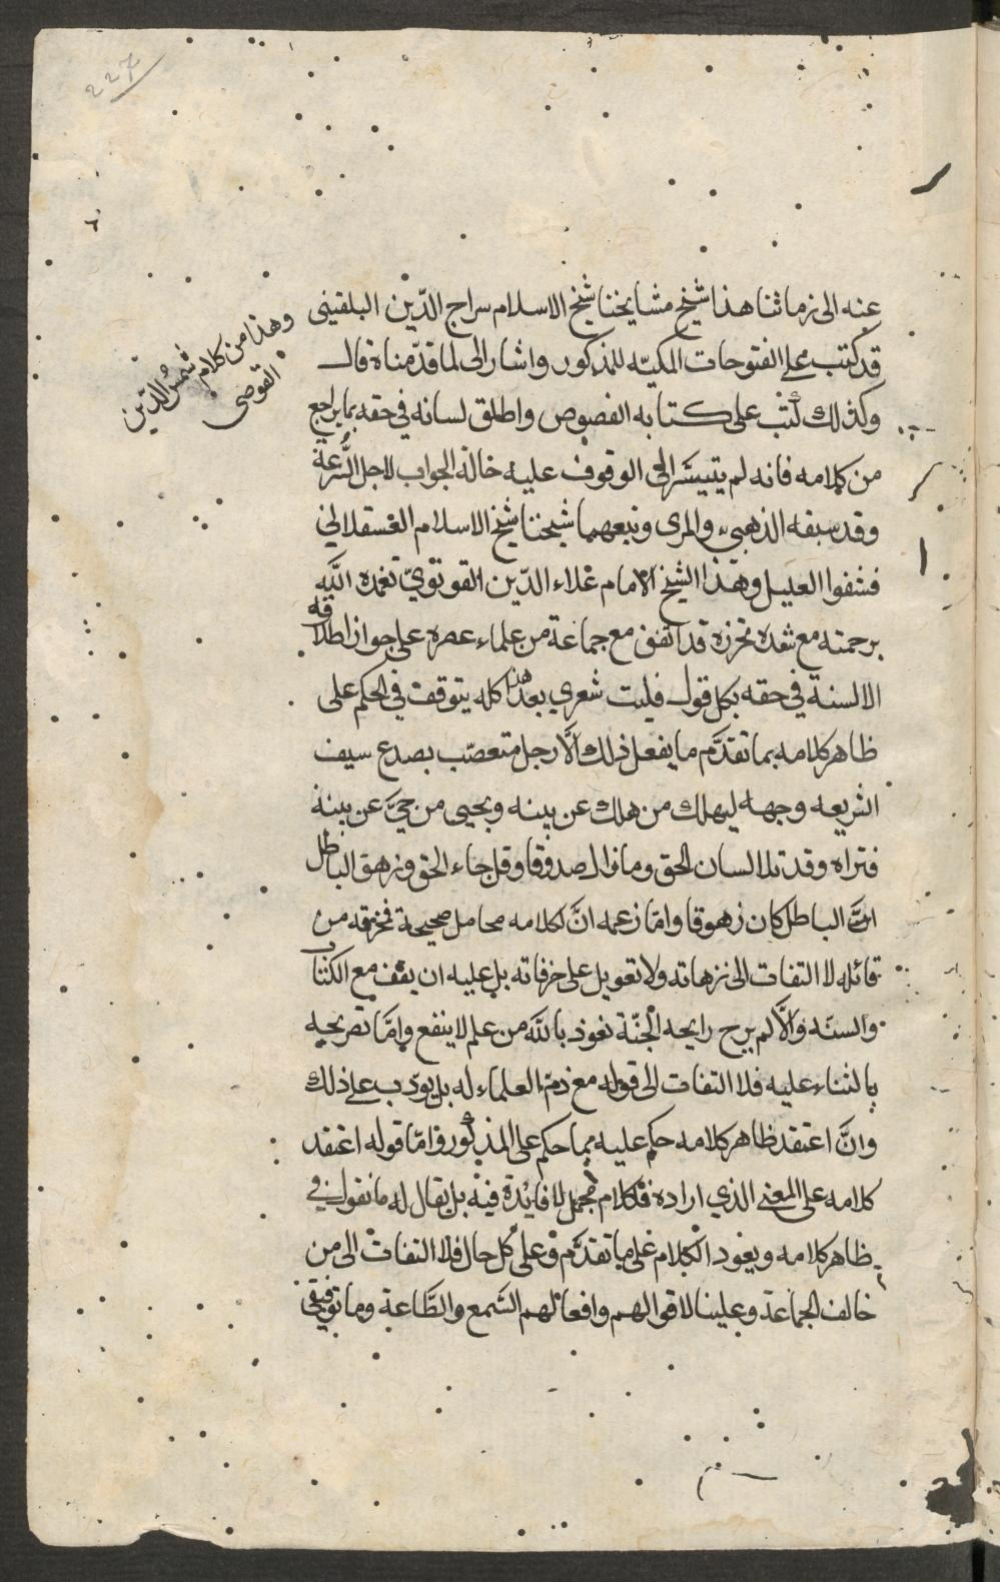 227
عنه الى زماننا هذا شيخ مشايخنا شيخ الاسلام سراج الدّين البلقينى
قد كتب على الفتوحات المكيّه للمذكور واشار الى لما قدّمناة قال
وكذلك كُتب على كتابه الفصوص واطلق لسانه في حقه بما يراجع
من كلامه فانه لم يتيسّر الى الوقوف عليه خالة الجواب لاجل السُّرعة
وقد سبقه الذهبي والمزى وتبعهما شيخنا شيخ الاسلام العسقلاني
فشفوا العليل وهذا الشيخ الامام علاء الدّين القونويّ تغمده اللّه
برحمته مع شدة تحرزه قد اتفق مع جماعة من علماء عصره على جواز اطلاقه
الالسنة في حقه بكل قول فليت شعري بعد هذا كله يتوقف في الحكم على
ظاهر كلامه بما تقدّم ما يفعل ذلك الّا رجل متعصّب بصدع سيف
الشريعه وجهه ليهلك من هلك عن بينه ويحيى من حيَّ عن بينة
فتراه وقد تلا لسان الحق وما زال صدوقا وقل جاء الحق وزهق الباطل
انّ الباطل كان زهوقا وامّا زعمه انّ لكلامه محامل صحيحة فخرقه من
قائله لا التفات الى نزهاته ولا تعويل على خرفاته بل عليه ان يقف مع الكتاب
والسنّه والّا لم يرح رايحه الجنّة نعوذ باللّه من علم لا ينفع وامّا تصريحه
بالثناء عليه فلا التفات الى قوله مع ذمّ العلماء له بل يودّب على ذلك
وانّ اعتقد ظاهر كلامه حكم عليه بما حكم على المذكور وامّا قوله اعتقد
كلامه على المعنى الذي اراده فكلام مجمل لا فايدة فيه بل يقال له ما نقول في
ظاهر كلامه ويعود الكلام على ما تقدّم وعلى كل حال فلا التفات الى من
خالف الجماعة وعلينا لاقوالهم وافعالهم السّمع والطّاعة وما توفيقي
وهذا من كلام شمس الدّين
القوصى